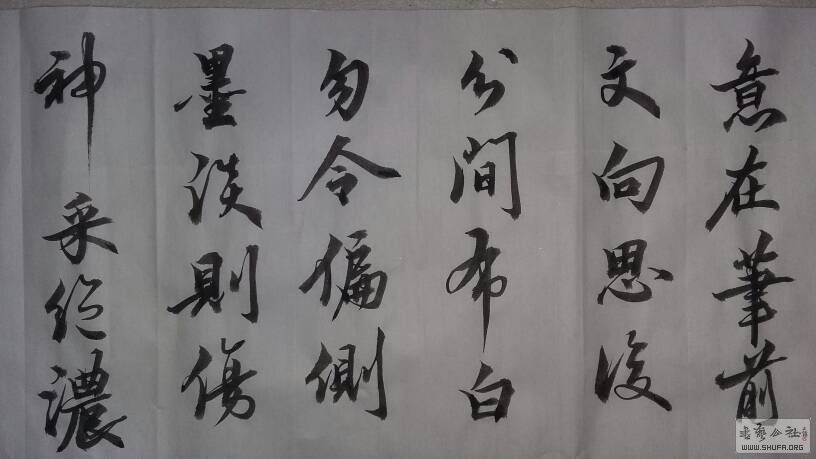 意在筆前
文向思後
分間布白
勿令偏側
墨淡則傷
神采絕濃
書藝公社
WWW.SHUFA.ORG